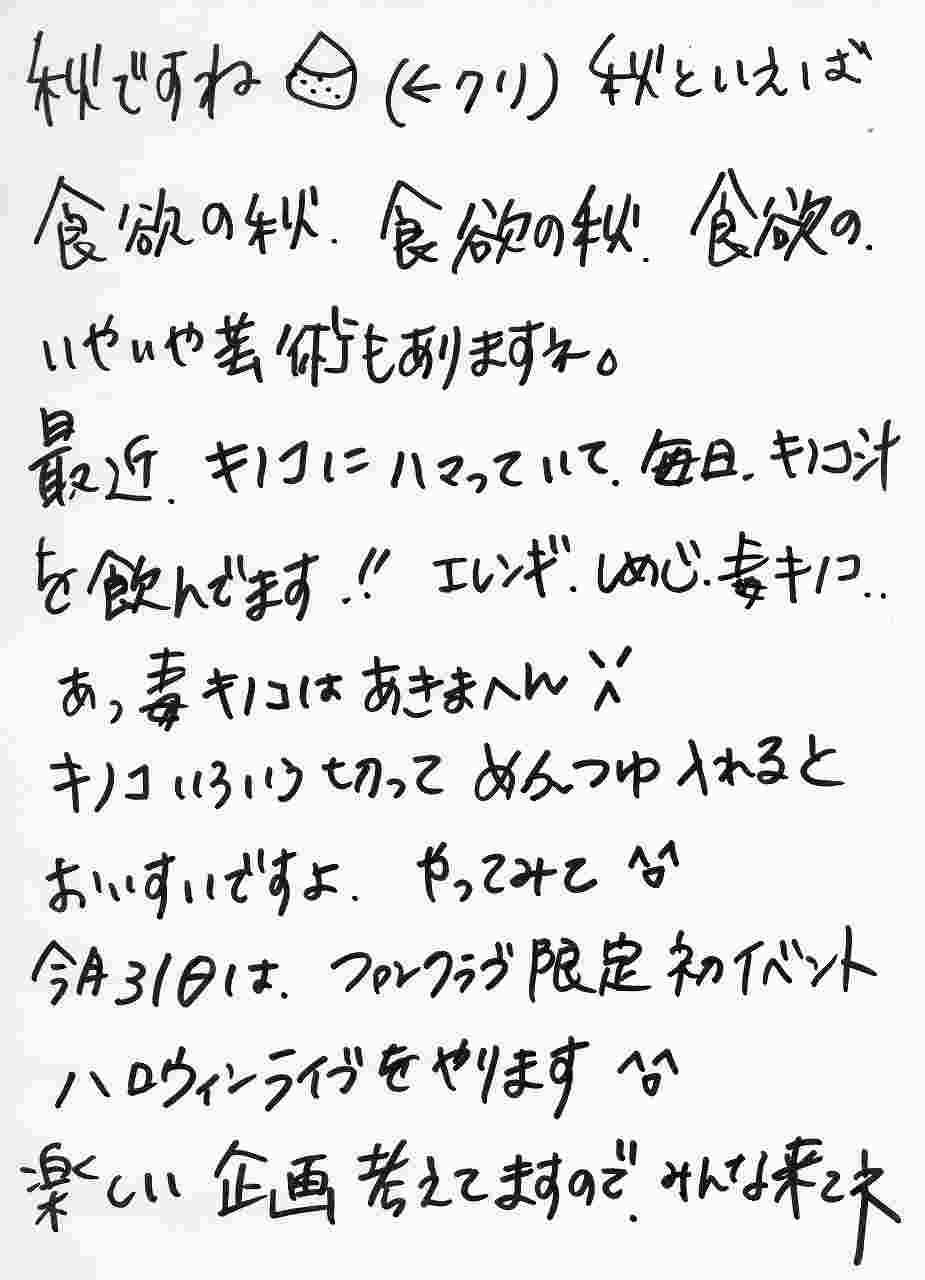 秋ですね (←クリ) 秋といえば
食欲の秋. 食欲の秋. 食欲の.
いやいや芸術もありますネ。
最近. キノコにハマっていて. 毎日. キノコ汁
を飲んでます.!! エレンギ. しめじ. 毒キノコ..
あっ毒キノコはあきまへん
キノコいろいろ切って めんつゆ入れると
おいすいですよ. やってみて ^□^
今月31日は. フロレクラブ限定初イベント
ハロウィンライブをやります ^□^
楽しい企画考えてますので. みんな来てネ